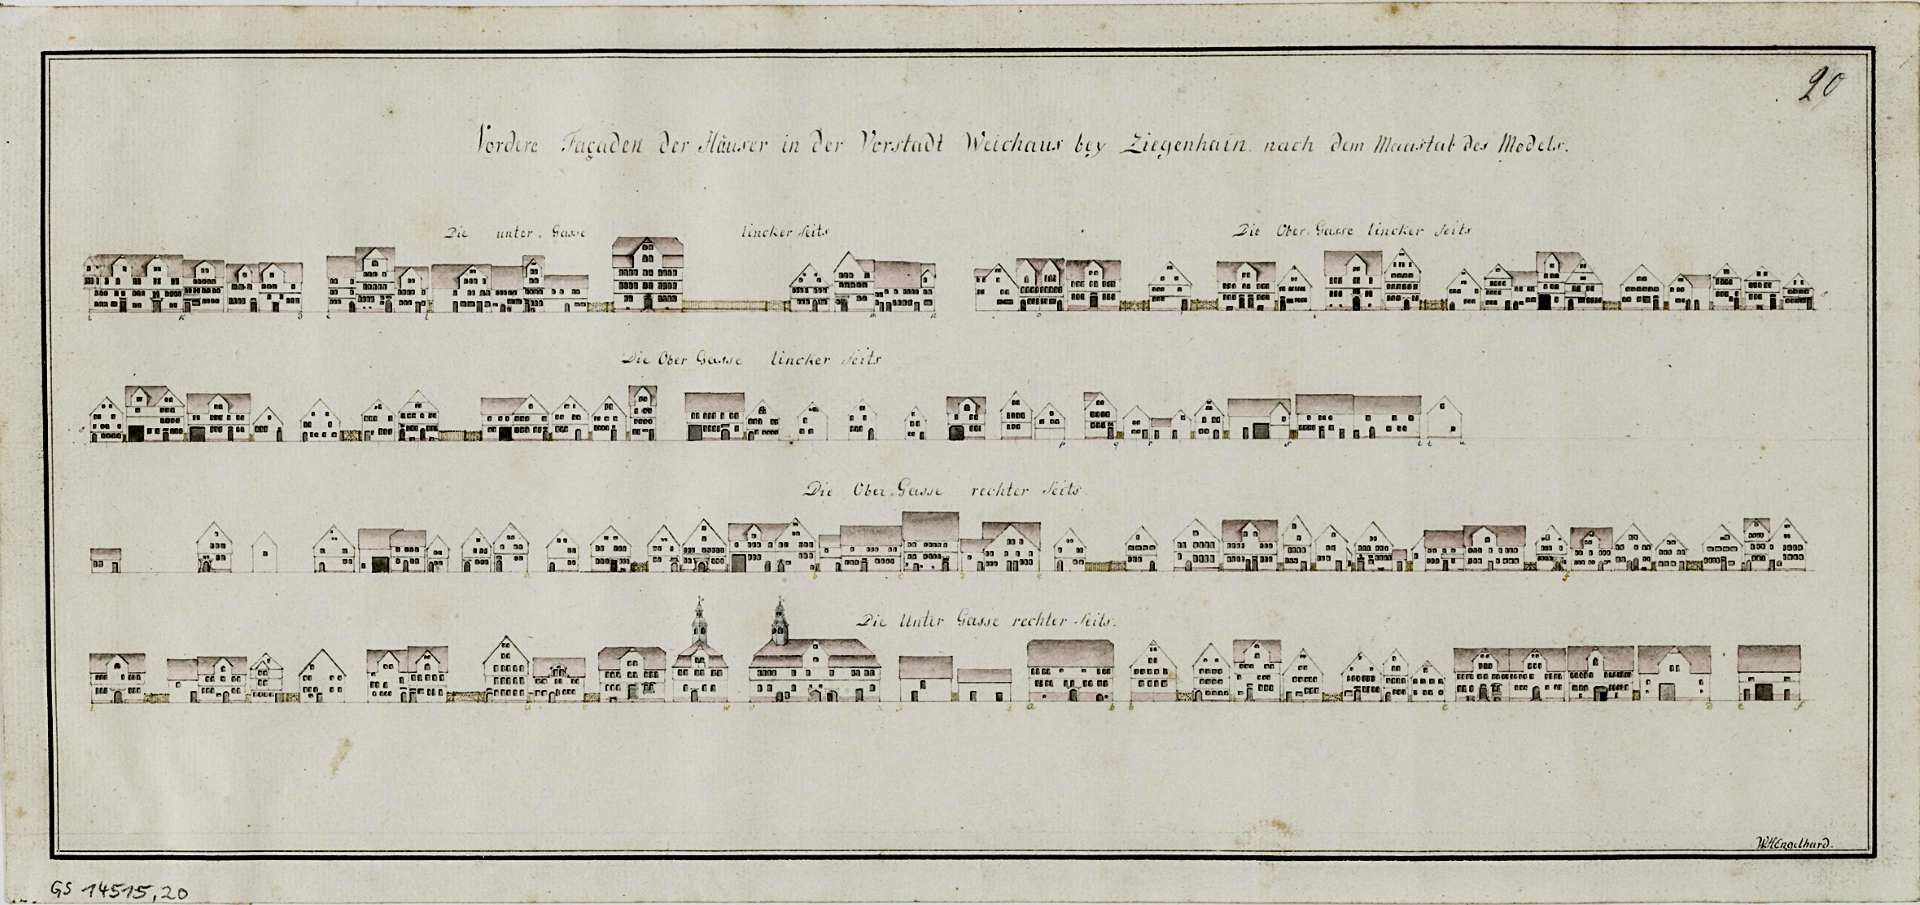 20
Vordere Façaden der Häuser in der Vorstadt Weichaus bey Ziegenhain nach dem Maastab des Models.
Die unter Gasse lincker Seits
Die Ober Gasse lincker Seits
Die Ober Gasse lincker Seits
Die Ober Gasse rechter Seits.
Die Unter Gasse rechter Seits.
WHEngelhard.
GS 14515,20